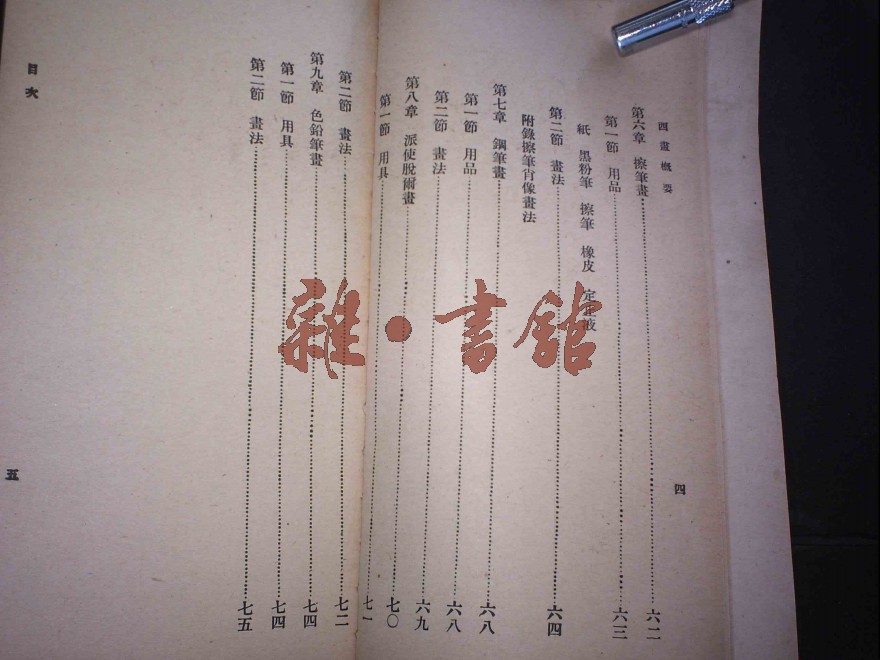 西畫概要
四
第六章 擦筆畫 六二
第一節 用品 六三
紙 黑粉筆 擦筆 橡皮 定
第二節 畫法 六四
附錄擦筆肖像畫法
第七章 鋼筆畫 六八
第一節 用品 六八
第二節 畫法 六九
第八章 派使脫爾畫 七〇
第一節 用具 七一
第二節 畫法 七二
第九章 色鉛筆畫 七四
第一節 用具 七四
第二節 畫法 七五
目次
五
雜·書館